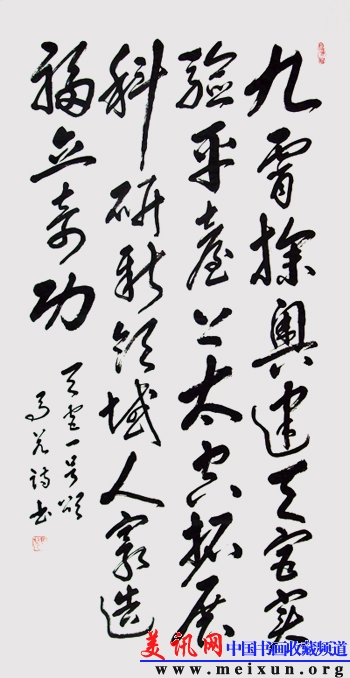 九霄探奥建天宫实
验平臺上太空拓展
科研新领域人寰造
福立奇功
天宫一号颂
马 诗书
美讯网 中国书画收藏频道
www.meixun.org